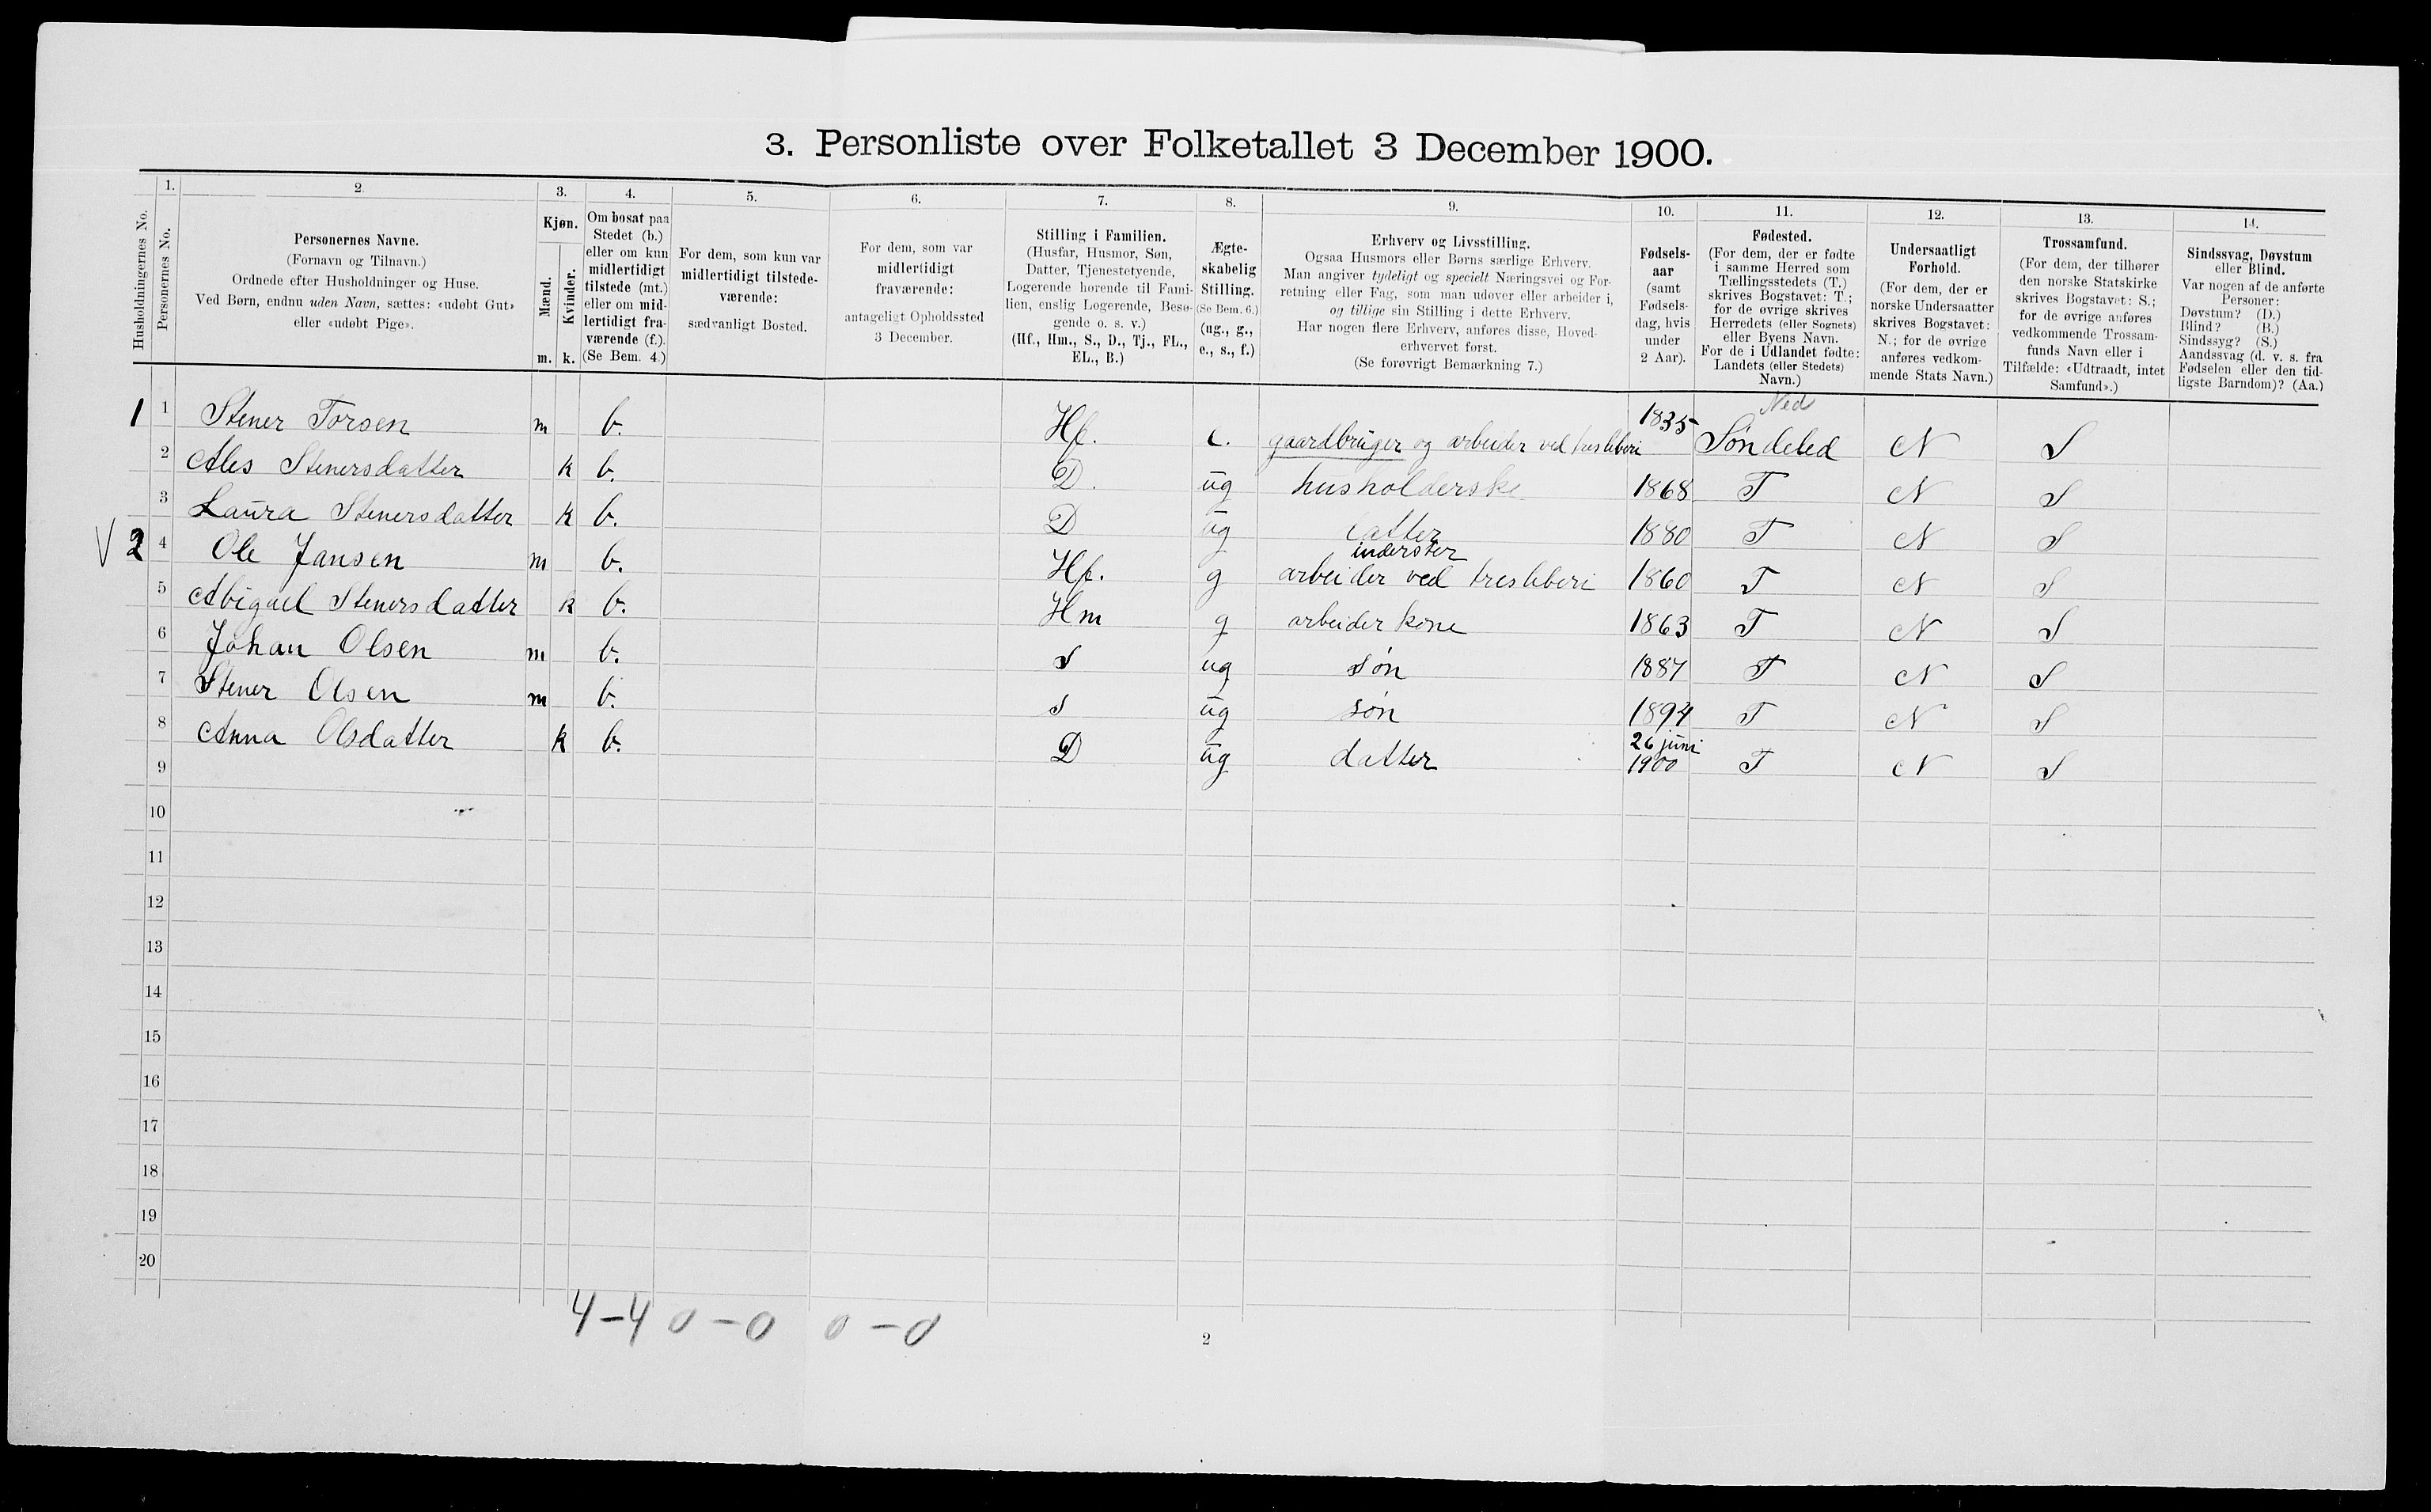 3. Personliste over Folketallet 3 December 1900.
1. 2. 3. 4. 5. 6. 7. 8. 9. 10. 11. 12. 13. 14.
Husholdningernes No.
Personernes No.
Personernes Navne.
(Fornavn og Tilnavn.)
Ordnede efter Husholdninger og Huse.
Ved Børn, endnu uden Navn, sættes: «udøbt Gut»
eller «udøbt Pige».
Kjøn.
Mænd.
Kvinder.
m. k.
Om bosat paa
Stedet (b.)
eller om kun
midlertidigt
tilstede (mt.)
eller om mid-
lertidigt fra-
værende (f.).
(Se Bem. 4.)
For dem, som kun var
midlertidigt tilstede-
værende:
sædvanligt Bosted.
For dem, som var
midlertidigt
fraværende:
antageligt Opholdssted
3 December.
Stilling i Familien.
(Husfar, Husmor, Søn,
Datter, Tjenestetyende,
Logerende hørende til Fami-
lien, enslig Logerende, Besø-
gende o. s. v.)
(Hf., Hm., S., D., Tj., FL.,
EL., B.)
Ægte-
skabelig
Stilling.
(Se Bem. 6.)
(ug., g.,
e., s., f.)
Erhverv og Livsstilling.
Ogsaa Husmors eller Børns særlige Erhverv.
Man angiver tydeligt og specielt Næringsvei og For-
retning eller Fag, som man udøver eller arbeider i,
og tillige sin Stilling i dette Erhverv.
Har nogen flere Erhverv, anføres disse, Hoved-
erhvervet først.
(Se forøvrigt Bemærkning 7.)
Fødsels-
aar
(samt
Fødsels-
dag, hvis
under
2 Aar).
Fødested.
(For dem, der er fødte
i samme Herred som
Tællingsstedets (T.)
skrives Bogstavet: T.;
for de øvrige skrives
Herredets (eller Sognets)
eller Byens Navn.
For de i Udlandet fødte:
Landets (eller Stedets)
Navn.)
Undersaatligt
Forhold.
(For dem, der er
norske Undersaatter
skrives Bogstavet:
N.; for de øvrige
anføres vedkom-
mende Stats Navn.)
Trossamfund.
(For dem, der tilhører
den norske Statskirke
skrives Bogstavet: S.;
for de øvrige anføres
vedkommende Trossam-
funds Navn eller i
Tilfælde: «Udtraadt, intet
Samfund».)
Sindssvag, Døvstum
eller Blind.
Var nogen af de anførte
Personer:
Døvstum? (D.)
Blind? (B.)
Sindssyg? (S.)
Aandssvag (d. v. s. fra
Fødselen eller den tid-
ligste Barndom)? (Aa.)
Ned
1 1 Stener Torsen m b. Hf. e. gaardbruger og arbeider ved træsliberi 1835 Søndeled N S
2 Ales Stenersdatter k b. D. ug husholderske 1868 T N S
3 Laura Stenersdatter k b. D ug datter 1880 T N S
inderster
V 2 4 Ole Jansen m b. Hf. g arbeider ved tresliberi 1860 T N S
5 Abigael Stenersdatter k b. Hm g arbeider kone 1863 T N S
6 Johan Olsen m b. S ug søn 1887 T N S
7 Stener Olsen m b. S ug søn 1894 T N S
8 Anna Olsdatter k b. D ug datter 26 juni
1900 T N S
9
10
11
12
13
14
15
16
17
18
19
20
4-4 0-0 0-0
2